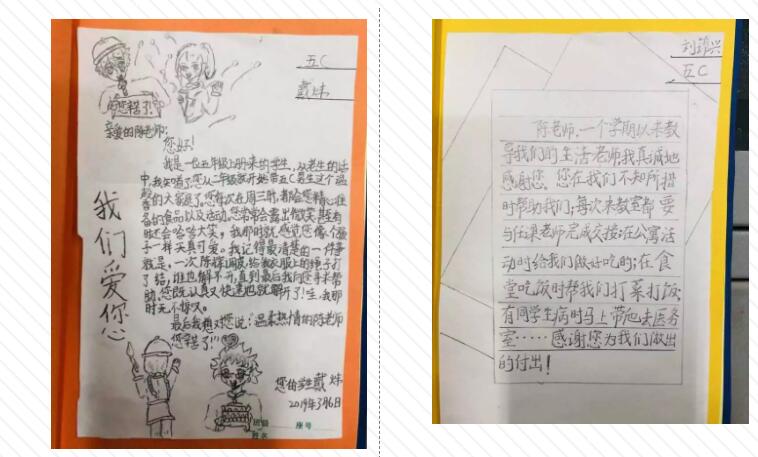 五C
戴妹
您辛苦了!
亲爱的陈老师:
您好!
我是一位五年级上册来的学生,从老生的话
中,我知道了您从二年级就开始带五C男生这个温
的大家庭了。您每次在周三时,都会您精心准
备的食品以及活动。您常常会露出微笑,甚至有
时还会哈哈大笑。我那时就感觉您像个孩
子一样天真可爱。我记得最清楚的一件事
就是,一次陈 调皮,给我衣服上的绳子打
了结,谁也解不开,直到最后我向您寻求帮
助,您既认真又快速地就解开了!哇,我那
时无不惊叹。
最后我想对您说:“温柔热情的陈老师
您辛苦了!”
我们爱你
您的学生戴妹
2019年3月6日
班级 座号
姓名
刘 兴
五C
陈老师,一个学期以来教
导我们的生活老师,我真诚地
感谢您。您在我们不知所措
时帮助我们;每次来教室都要
与任课老师完成交接;在公寓活
动时给我们做好吃的;在食
堂吃饭时帮我们打菜打饭,
有同学生病时马上带他去医务
室……感谢您为我们做出
的付出!